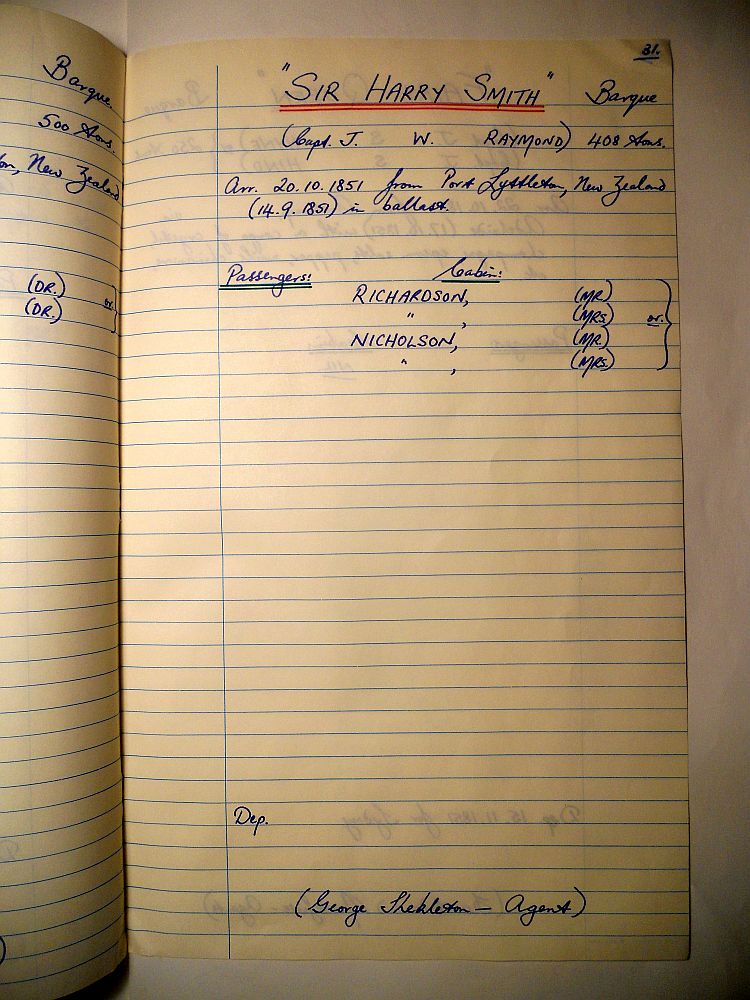 Barque
500 tons.
New Zealand
(DR.)
(DR.) or.
31.
"SIR HARRY SMITH" Barque
(Capt. J. W. RAYMOND) 408 tons.
Arr. 20.10.1851 from Port Lyttleton, New Zealand
(14.9.1851) in ballast.
Passengers: Cabin:
RICHARDSON, (MR)
" , (MRS) or.
NICHOLSON, (MR)
" , (MRS)
Dep.
(George Shekleton — Agent)